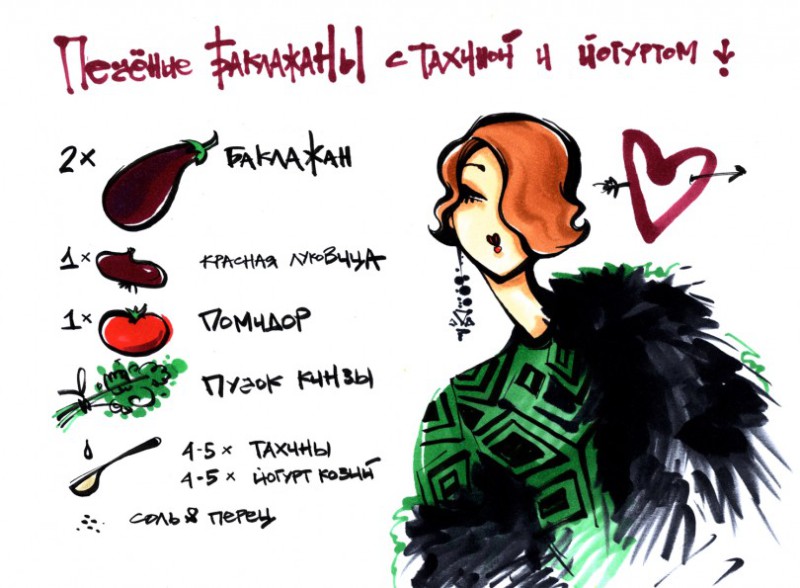 Печёные баклажаны с тахиной и йогуртом!
2× баклажан
1× красная луковица
1× помидор
пучок кинзы
4-5× тахины
4-5× йогурт козий
соль & перец